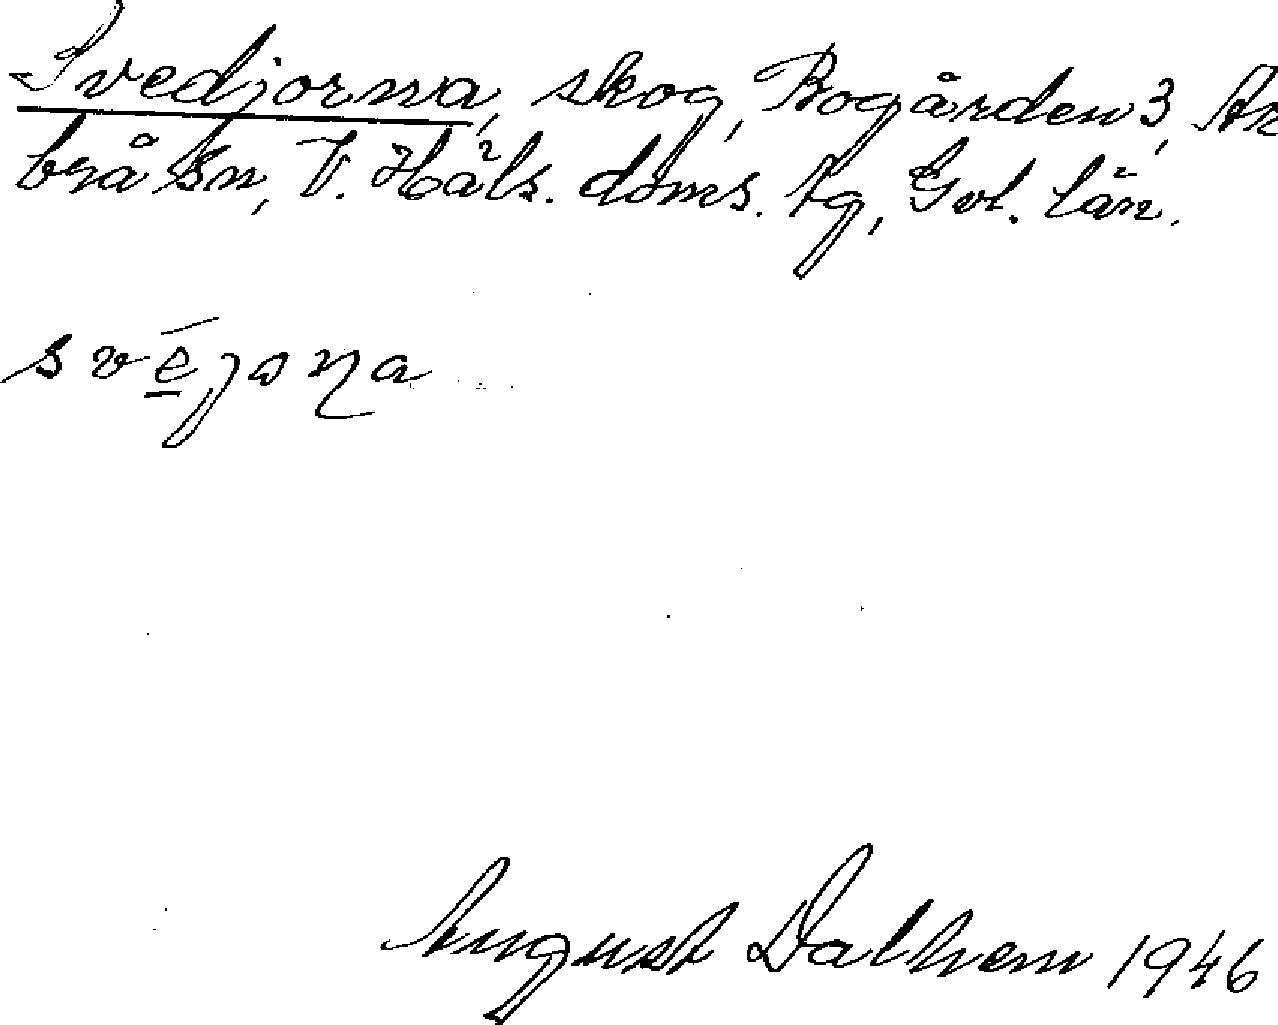 Svedjorna, skog, Bogården 3, Ar
brå sn, V. Häls. doms. tg, Gvl. län.
svējoɳa
August Dalhem 1946